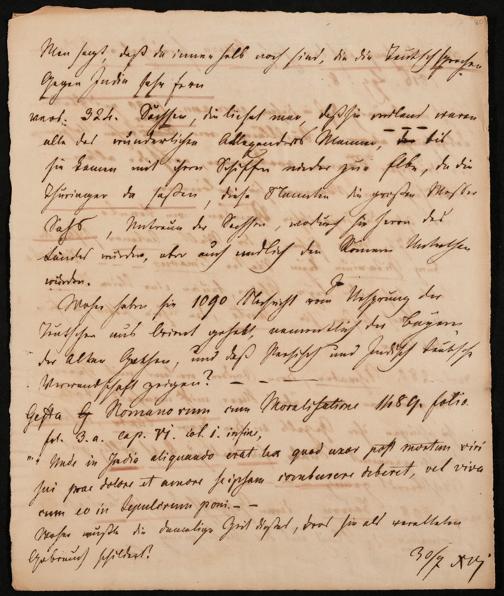 Man sagt, daß da innerhalb noch sind, die die Teutsch sprechen
Gegen India sehr fern
vers. 324. Sachsen, die liset man, daß sie weiland waren
alle des wunderlichen Alexanders Manne, – I – bis
sie kamen mit ihren Schiffen nieder zur Elbe, da die
Thüringer da saßen, diese die großen Messer
Sahs, der Sachsen, wodurch sie Herrn des
Landes wurden, aber auch endlich den Römern
wurden.
Woher haben sie 1090 Nachricht vom Ursprung der
Teutschen aus Orient gehabt, namentlich der Bayern,
der Alten Gothen, und daß Persisch und Indisch teutsche
Verwandschaft zeigen? – – –
Gesta Romanorum cum Moralisatione 1489. folio
fol. 3. a. cap. VI. col. 1. infine,
"Unde in India aliquando erat lex quod uxor post mortem viri
sui prae dolore et amore seipsam comburere deberet, vel viva
cum eo in sepulcrum poni. – –
Woher wußte die damalige Zeit dieses, das sie als veralteten
Gebrauch schildert?
30/7